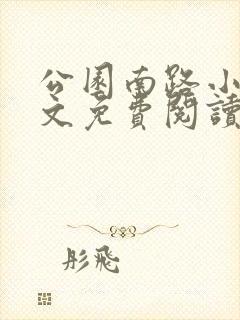 公園南路小
文免費閱讀
彤飛